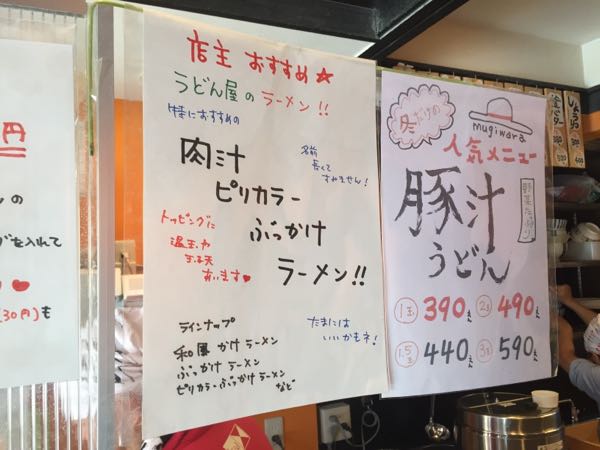 円
の
グを入れて
30円)も
店主 おすすめ☆
うどん屋の ラーメン!!
特におすすめの
肉汁
ピリカラー
ぶっかけ
ラーメン!!
名前
長くて
すみません!
トッピングに
温玉や
玉子天
あいます♥
ラインナップ
和風かけラーメン
ぶっかけ ラーメン
ピリカラーぶっかけラーメン
など
たまには
いいかもネ!
冬だけの
mugiwara
人気メニュー
豚汁
うどん
野菜たっぷり
1玉 390え
2玉 490え
1.5玉 440え
3玉 590え